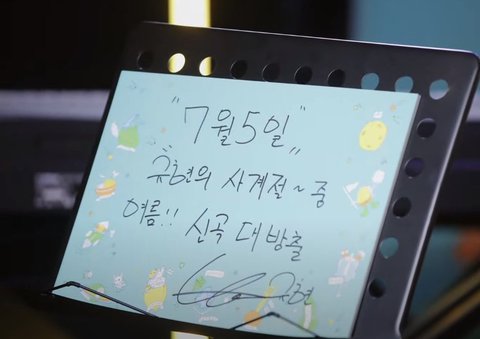 "7월 5일"
"규현의 사계절~ 중
여름!! 신곡 대방출
규현